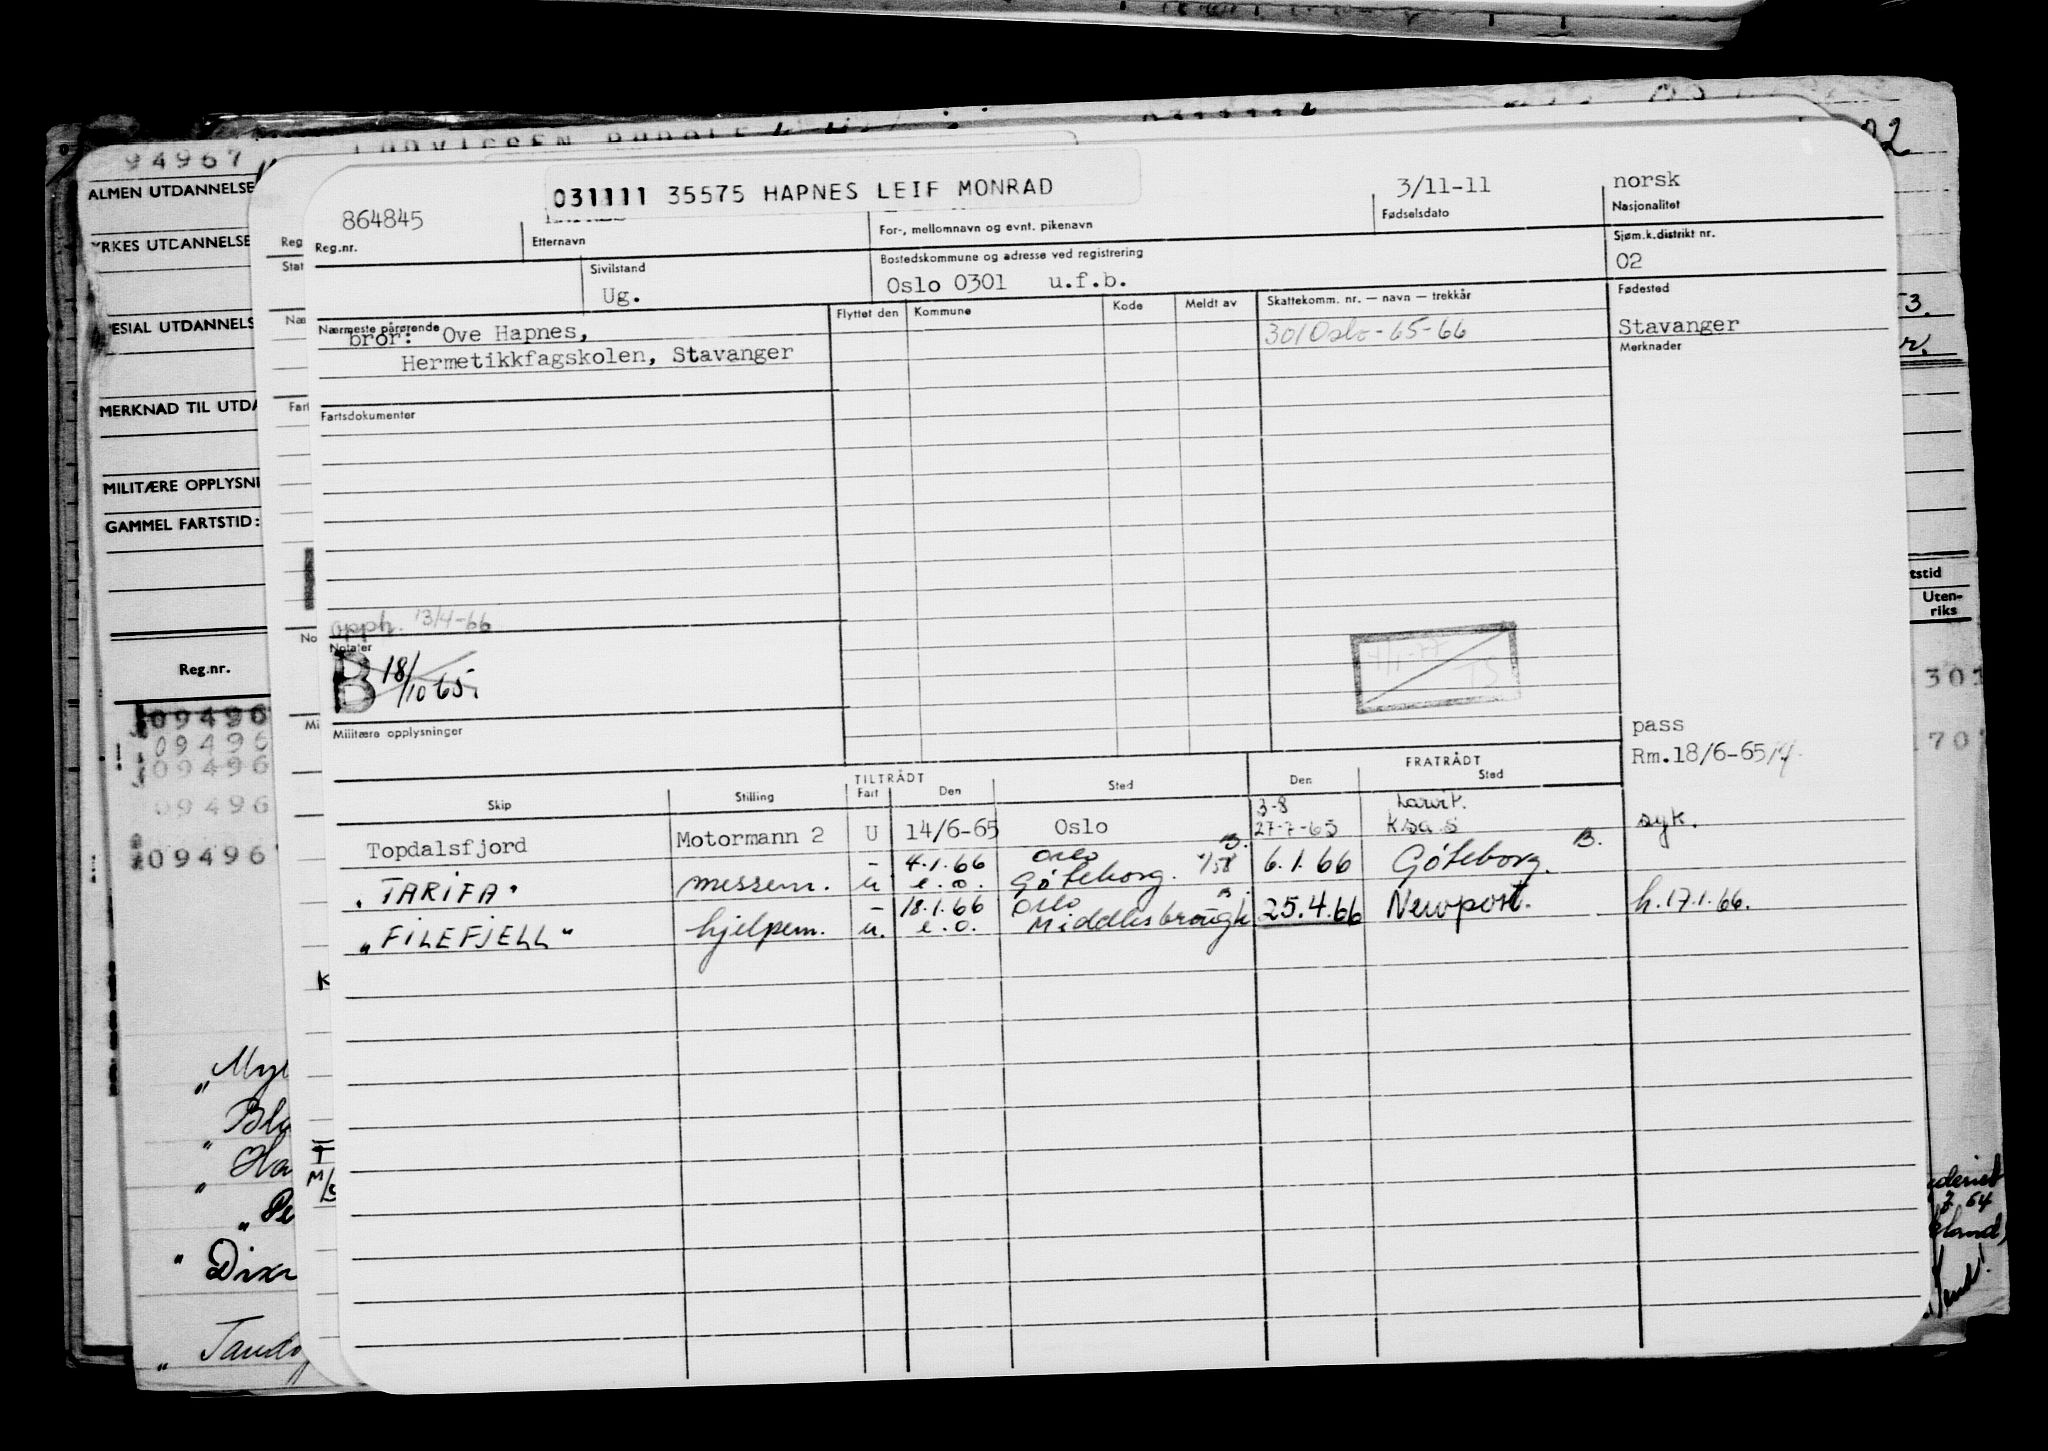 94967
ALMEN UTDANNELSE
YRKES UTDANNELSE
MERKNAD TIL UTDA
MILITÆRE OPPLYSNI
GAMMEL FARTSTID:
Reg.nr.
031111 35575 HAPNES LEIF MONRAD
3/11-11
norsk
864845
Fødselsdato
Nasjonalitet
Reg.nr.
Etternavn
For-, mellomnavn og evnt. pikenavn
Sjøm.k.distrikt nr.
Sivilstand
Bostedskommune og adresse ved registrering
02
Ug.
Oslo 0301 u.f.b.
Fødested
Nærmeste pårørende
Flyttet den Kommune Kode Meldt av Skattekomm. nr. — navn — trekkår
bror: Ove Hapnes,
301 Oslo-65-66
Stavanger
Hermetikkfagskolen, Stavanger
Merknader
Fartsdokumenter
Opph. 13/4-66
Notater
B 18/10 65.
Militære opplysninger
pass
Rm.18/6-65
TILTRÅDT FRATRÅDT
Skip Stilling Fart Den Sted Den Sted
3-8 Larvik.
Topdalsfjord Motormann 2 U 14/6-65 Oslo 27-7-65 Ksa s syk.
- 4.1.66 Oslo B.
"TARIFA" messem. u e.o. Göteborg. 6.1.66 Göteborg. B.
- 18.1.66 Oslo
"FILEFJELL" hjelpem. u. e.o. Middlesbrough 25.4.66 Newport. h.17.1.66.
09496
09496
09496
09496
09496
tstid
Uten-
riks